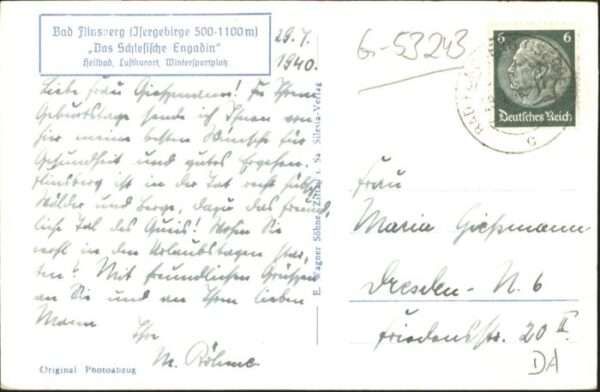 Bad Flinsberg (Isergebirge 500-1100 m)
„Das Schlesische Engadin"
Heilbad, Luftkurort, Wintersportplatz
29.7.
1940.
Liebe Frau Gießmann! Zu Ihrem
Geburtstage sende ich Ihnen von
hier meine besten Wünsche für
Gesundheit und gutes Ergehen.
Flinsberg ist in der Tat recht hübsch,
Wälder und Berge, dazu das freund-
liche Tal des Queis! Wohin Sie
wohl in den Urlaubstagen star-
ten? Mit freundlichen Grüßen
an Sie und an Ihren lieben
Mann
Ihr
M. Böhme
Original Photoabzug
E. Wagner Söhne, Zittau i. Sa. Silesia-Verlag
G-53243
6 6
Deutsches Reich
BAD
Frau
Maria Gießmann
Dresden-N. 6
Friedensstr. 20 II.
DA